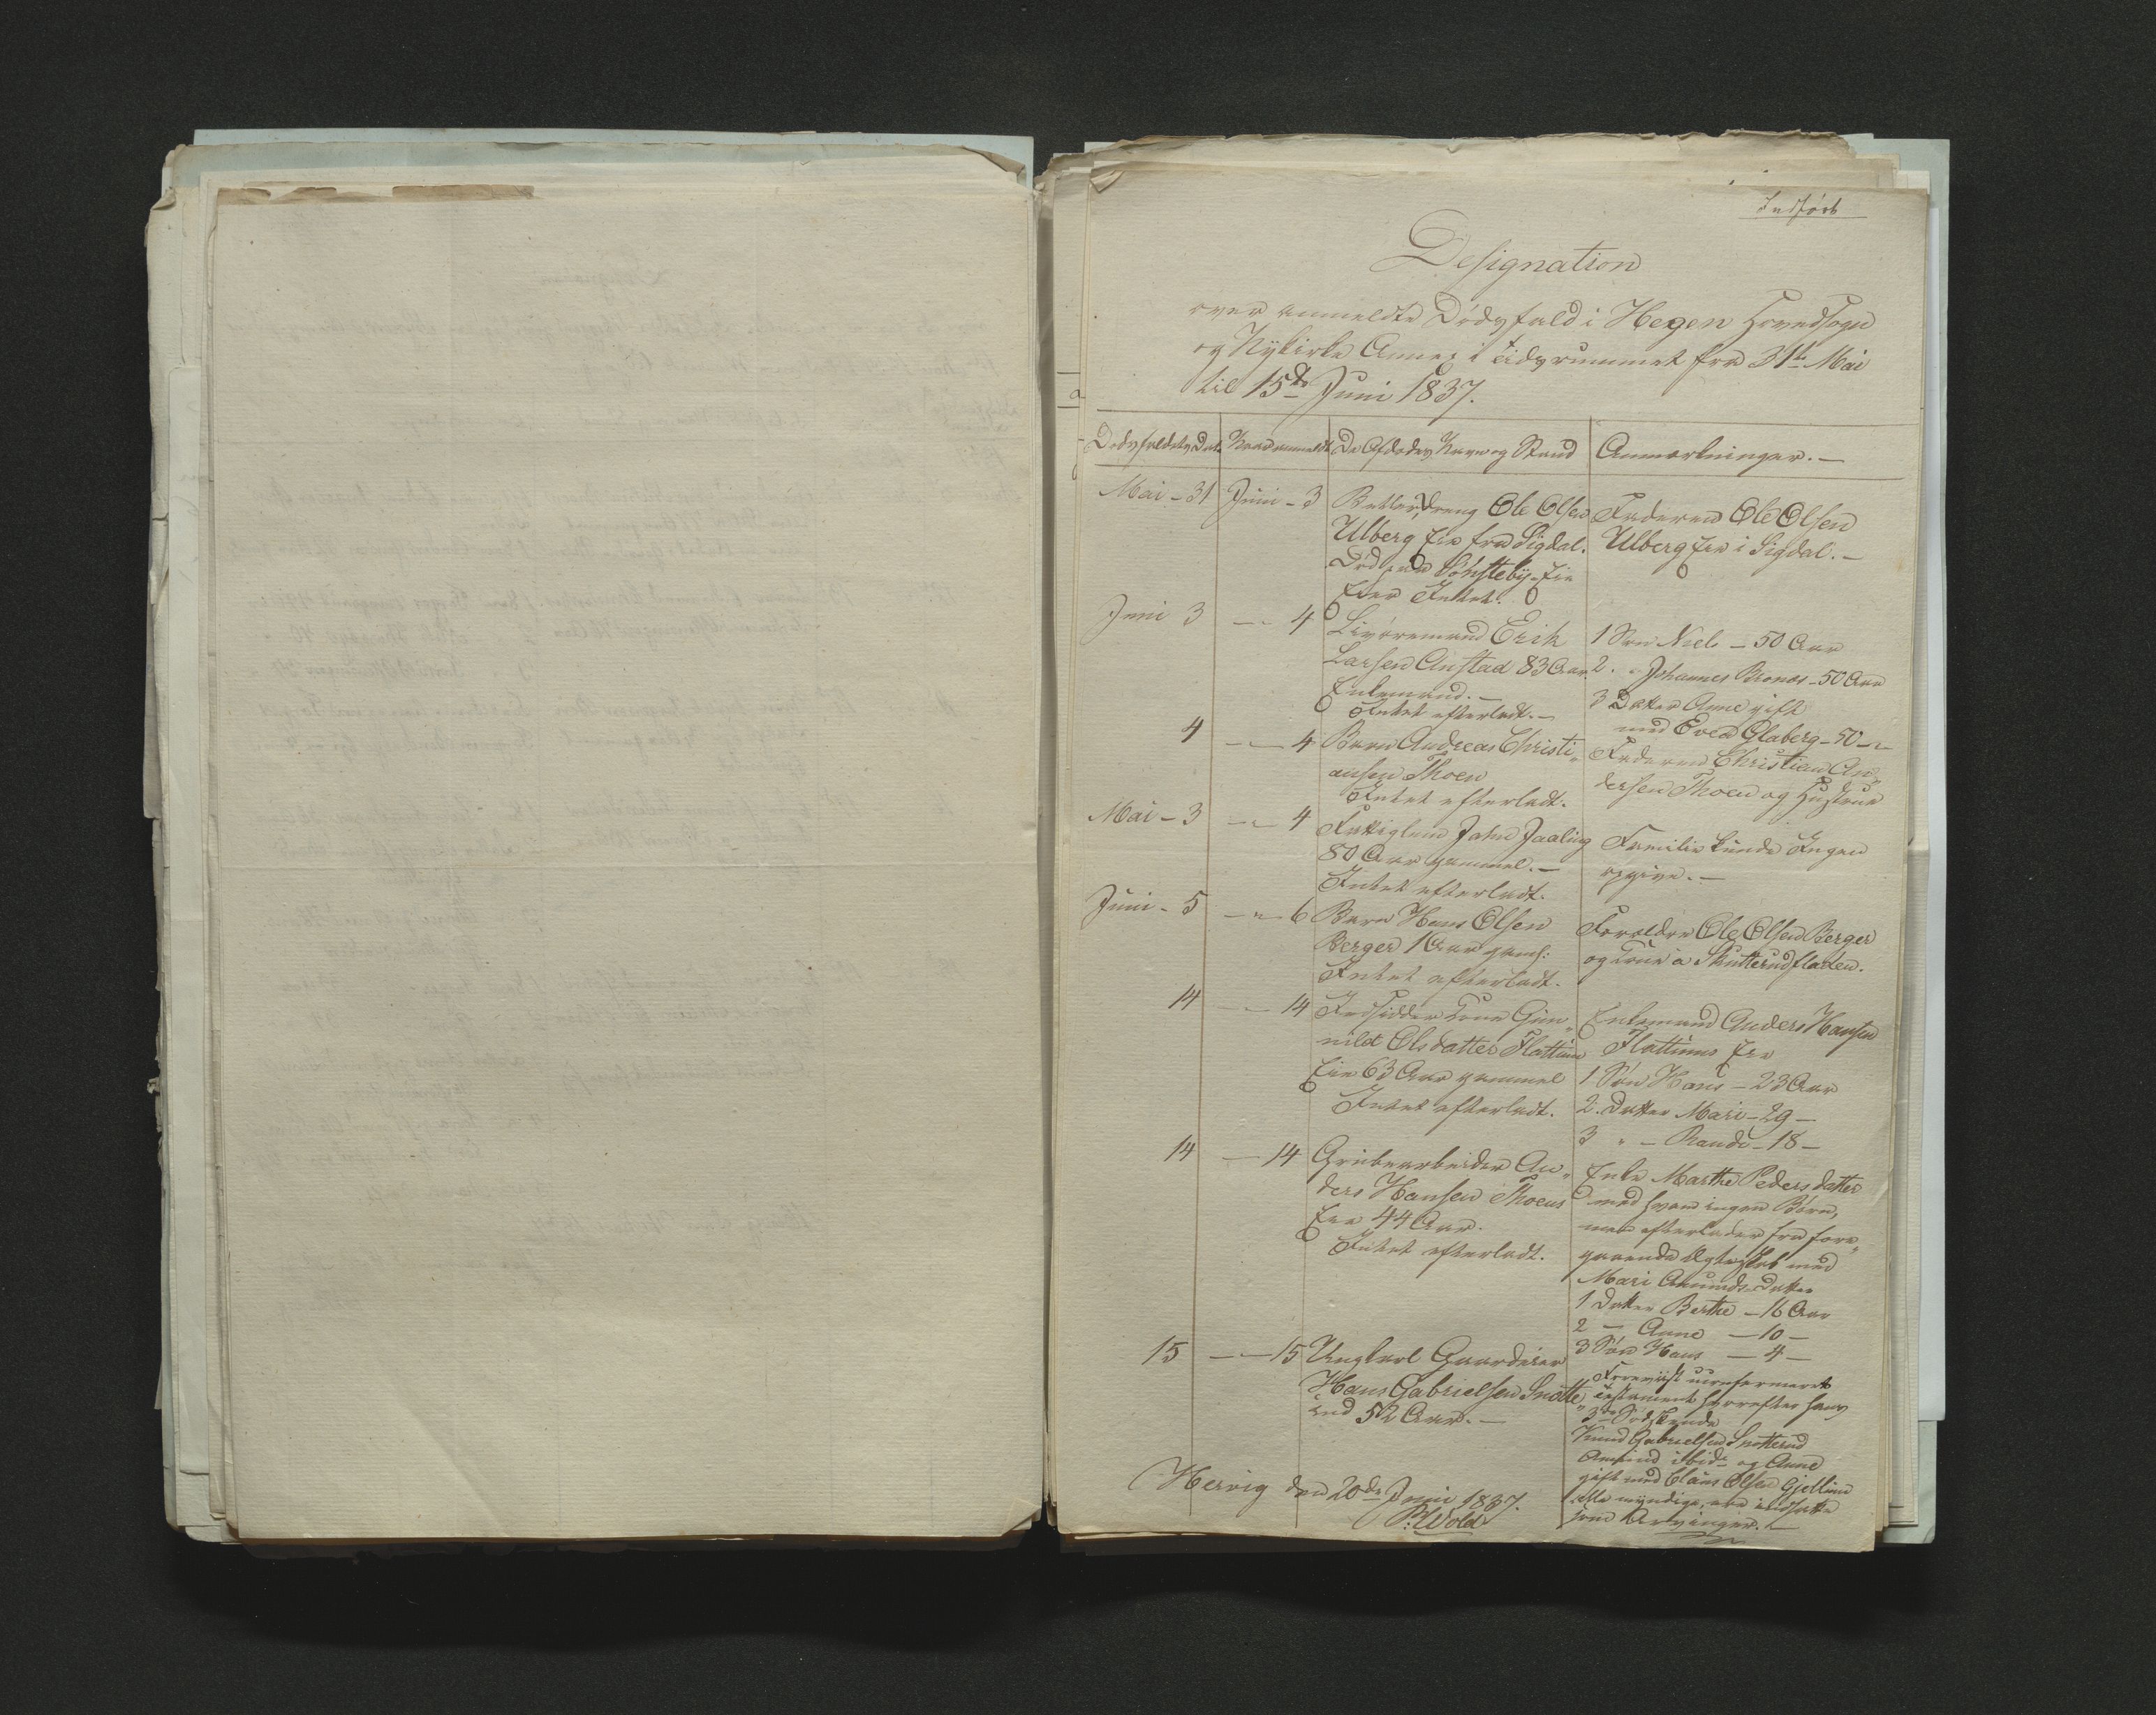 Indført
Designation
over anmeldte Dødsfald i Hegen Hovedsogn
og Nykirke Annex i Tidsrummet fra 31te Mai
til 15de Juni 1837.
Dødsfaldets Dat. Naar anmeldt De Afdødes Navn og Stand Anmærkninger.—
Mai - 31 Juni - 3 Betler Dreng Ole Olsen
Ulberg Eie fra Sigdal.
Død paa Sønsteby-Eie
Eier Intet.
Faderen Ole Olsen
Ulberg Eie i Sigdal.—
Juni 3 — " 4 Livøremand Erik
Larsen Anstad 83 Aar.
Enkemand.—
Intet efterladt.—
1 Søn Niels — 50 Aar
2. " Johannes Bronæs - 50 Aar
3 Datter Anne gift
med Even Glaberg - 50 — "
4 — " — 4 Barn Andreas Christi„
ansen Thoen
Intet efterladt.
Faderen Christian An„
dersen Thoen og Hustrue
Mai - 3 — " — 4 Fattiglem John Jaaling
80 Aar gammel.—
Intet efterladt.
Familie kunde Ingen
opgive.—
Juni - 5 — " — 6 Barn Hans Olsen
Berger 1 Aar gaml:
Intet efterladt.
Forældre Ole Olsen Berger
og Kone a Skutterudfladen.
14 — " — 14 Indsidder Kone Gun„
nild Olsdatter Flattum
Eie 63 Aar gammel
Intet efterladt.
Enkemand Anders Hansen
Flattums Eie
1 Søn Hans — 23 Aar
2. Datter Mari - 29 —
3 " — Randi - 18 —
14 — 14 Grubearbeider An„
ders Hansen Thoens
Eie 44 Aar.
Intet efterladt.
Enke Marthe Pedersdatter
med hvem ingen Børn,
men efterlader fra fore„
gaaende Ægteskab med
Mari Amunds Datter
1 Datter Berthe — 16 Aar
2 — Anne — 10 —
3 Søn Hans — 4 —
15 — — 15 Ungkarl Gaardeier
Hans Gabrielsen Snotte„
rud 52 Aar.—
Foreviist uconfirmeret
Testament hvorefter hans
3de Sødskende
Knud Gabrielsen Snotterud
Amund ibid: og Anne
gift med Claus Olsen Gjellum
alle myndige, ere indsatte
som Arvinger.—
Hervig den 20de Juni 1837.
P: Wold